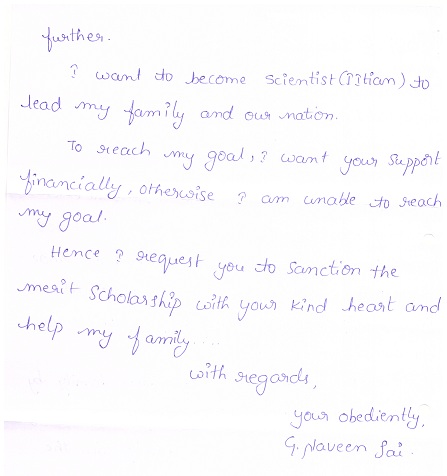 further.
I want to become scientist (IITian) to
lead my family and our nation.
To reach my goal, I want your support
financially, otherwise I am unable to reach
my goal.
Hence I request you to sanction the
merit Scholarship with your kind heart and
help my family....
with regards,
your obediently,
G. Naveen Sai.